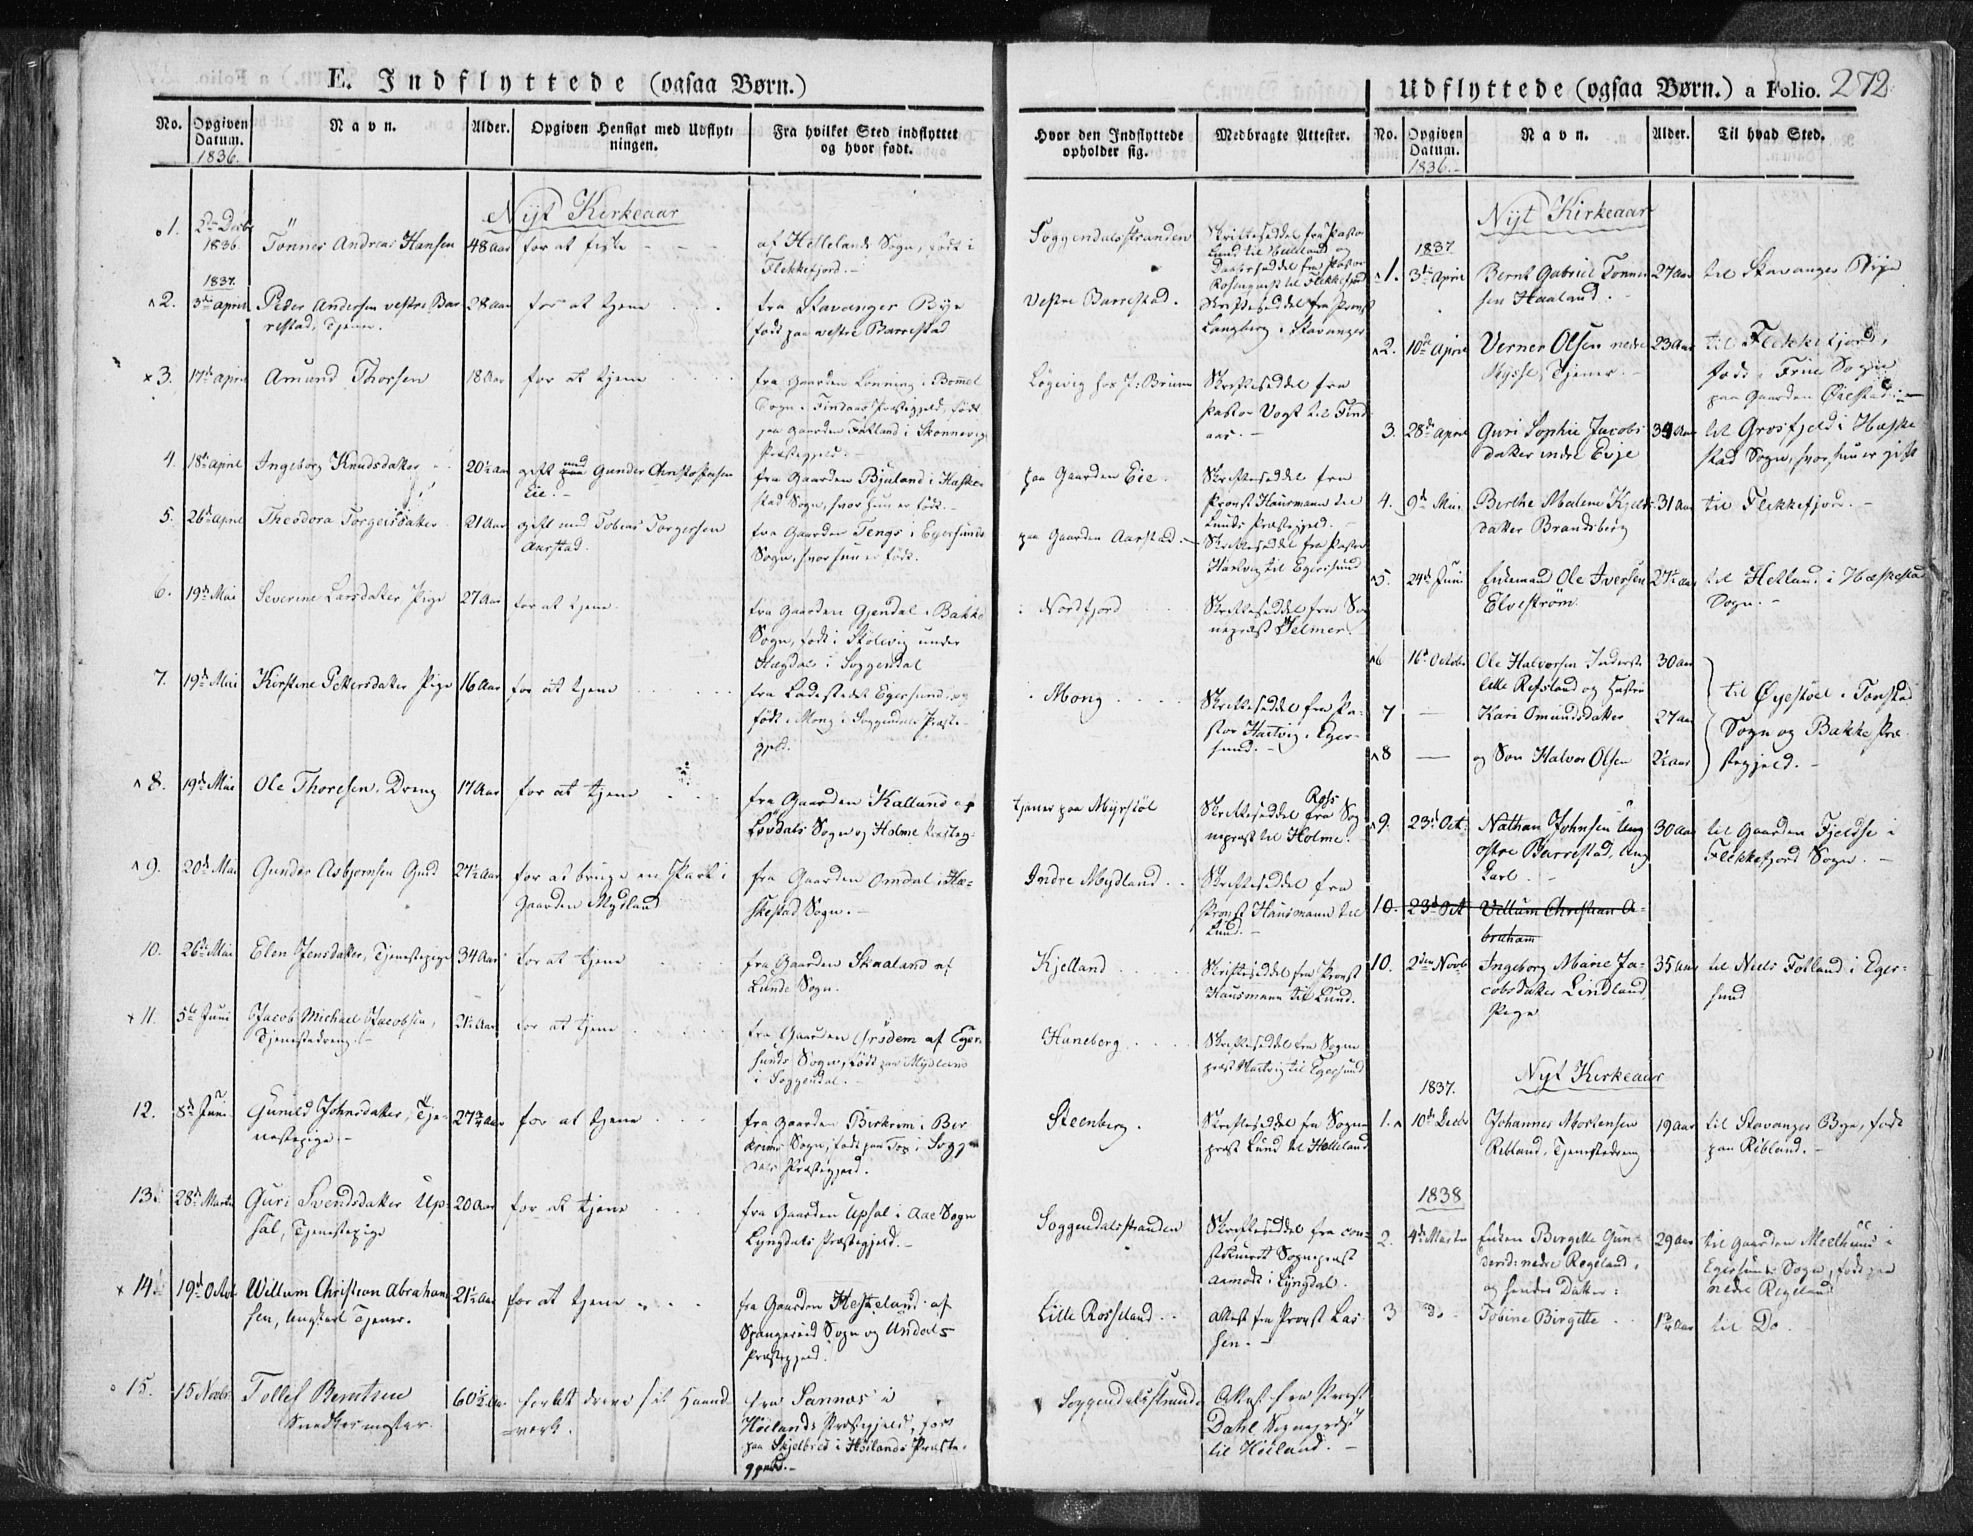 E. Indflyttede (ogsaa Børn.)
No.
Opgiven Datum.
1836.
Navn.
Alder.
Opgiven Hensigt med Udflytningen.
Fra hvilket Sted indflyttet og hvor født.
Hvor den Indflyttede opholder sig.
Medbragte Attester.
Nyt Kirkeaar
1. 2den Decbr 1836 Tönnes Andreas Hansen 48 Aar for at fiske
af Hellelands Sogn, født i
Flekkefjord.
Soggendalsstranden
Skrifteseddel fra Pastor
Lund til Helleland og
1837.
2. 3die April Peder Andersen vestre Bar
restad, Tjener.
28 Aar for at tjene
fra Stavanger Bye
født paa vestre Barrestad
Vestre Barrestad.
Skrifteseddel fra Provst
Langberg i Stavanger
3. 17de April Amund Thorsen 18 Aar for at tjene
fra Gaarden Lønning i Bömmel
Sogn i Findaas Præstegjeld, født
paa Gaarden Fatland i Skonnevig
Præstegjeld.
Skrifteseddel fra
Pastor Vogt til Find
aas.
4. 18de April Ingeborg Knudsdatter 20½ Aar gift med Gunder Christophersen
Eie.
fra Gaarden Bjuland i Hæske
stad Sogn, hvor hun er født.
paa Gaarden Eie
Skrifteseddel fra
Provst Hausmann til
Lunds Præstegjeld.
5. 26de April Theodora Torgersdatter 21 Aar gift med Tobias Torgersen
Aarstad.
fra Gaarden Tengs i Egersunds
Sogn, hvor hun er født.
paa Gaarden Aarstad.
Skrifteseddel fra Pastor
Hartvig til Egersund
6. 19de Mai Severine Larsdatter Pige 27 Aar for at tjene
fra Gaarden Gjendal i Bakke
Sogn, født i Stölevig under
Hægdal i Soggendal
Nordfjord
Skrifteseddel fra Sog
nepræst Velmer.
7. 19de Mai Kirstine Pettersdatter Pige 16 Aar for at tjene
fra Ladestedet Egersund, og
født i Mong i Soggendals Præste
gjeld.
Mong
Skrifteseddel fra Pa-
stor Hartvig i Eger-
sund.
8. 19de Mai Ole Thoresen, Dreng 17 Aar for at tjene
fra Gaarden Kalland af
Løvdals Sogn og Holme Præsteg
tjener paa Myrstöl
Skrifteseddel fra Sog
nepræst til Holme.
9. 20de Mai Gunder Asbjornsen 27½ Aar for at bruge en Part i
Gaarden Mydland
fra Gaarden Omdal i Hæ-
skestad Sogn.
Indre Mydland
Skrifteseddel fra
Provst Hausmann til
Lund.
10. 26de Mai Elen Jensdatter, Tjenestepige 34 Aar for at tjene
fra Gaarden Skaaland af
Lunde Sogn.
Kjelland
Skrifteseddel fra Provst
Hausmann til Lund.
11. 5te Juni Jacob Michael Jacobsen,
Tjenestedreng.
21½ Aar for at tjene
fra Gaarden Örsdem af Eger-
sunds Sogn, født paa Mydland
i Soggendal.
Haneberg
Skrifteseddel fra Sogne
præst Hartvig til Egersund
12. 8de Juni Gunild Johnsdatter, Tje-
nestepige.
27¾ Aar for at tjene
fra Gaarden Birkrem i Bir
krems Sogn, født paa Tog i Soggen
dals Præstegjeld.
Steenberg.
Skrifteseddel fra Sogne
præst Lund til Helleland
13. 28de Martii Guri Svendsdatter Up-
sal, Tjenestepige
20 Aar for at tjene
fra Gaarden Upsal i Aae Sogn
Lyngdals Præstegjeld.
Soggendalsstranden
Skrifteseddel fra con-
stitueret Sognepræst
i Lyngdal.
14. 19de Octob Willum Christian Abraham
sen, Ungkarl Tjener.
21½ Aar for at tjene
fra Gaarden Hesteland af
Spangereid Sogn og Undals
Præstegjeld.
Lille Rosseland
Attest fra Provst Las
sen.
15. 15 Novbr Tollef Berntsen
Snedkermester
60½ Aar for at drive sit Haand-
værk.
fra Sannes i
Höilands Præstegjeld, født
paa Skjelbred i Höilands Præste-
gjeld.
Soggendalsstranden
Attest fra Provst
Dahl Sognepræst
til Höiland.
Udflyttede (ogsaa Børn.) a Folio. 272
No.
Opgiven Datum.
1836.
Navn.
Alder.
Til hvad Sted.
Nyt Kirkeaar
1837
1. 3die April Bernt Gabriel Tönne
sen Haaland.
27 Aar til Stavanger Bye
2. 10de April Verner Olsen nedre
Mysse, Tjener.
23 Aar til Flekkefjord,
født i Frue Sogn
paa Gaarden Öiestad.
3. 28de April Guri Sophie Jacobs
datter indre Evje
34 Aar til Grosfjeld i Hæske
stad Sogn, hvor hun er gift
4. 9de Mai Berthe Malene Kjels
datter Brandsberg
31 Aar til Flekkefjord.
5. 24de Juni Enkemand Ole Iversen
Elvestrøm
27½ Aar til Hetland i Hæskestad
Sogn.
6 16de Octobr Ole Halvorsen Inderst
Lille Refsland og Hustru
30 Aar
7 — Kari Omundsdatter 27 Aar
8 — og Søn Halvor Olsen 2½ Aar
til Øyestöel i Tonstad
Sogn og Bakke Præ
stegjeld.
9. 23de Oct. Nathan Johnsen
østre Barrestad, Ung
Karl.
30 Aar til Gaarden Fjeldse i
Flekkefjord Sogn.
10. 23de Oct Villum Christian A-
braham
10. 2den Novb Ingeborg Marie Ja-
cobsdatter Lindland,
Pige
35 Aar til Niels Fotland i Eger-
sund
Nyt Kirkeaar
1837.
1. 10de Decbr Johannes Mortensen
Ribland, Tjenestedreng
19 Aar til Stavanger Bye, født
paa Ribland.
1838
2. 4de Martii Enken Birgitte Gun-
dersd: nedre Regeland,
og hendes Datter:
29 Aar til Gaarden Meelhuus i
Egersunds Sogn, født paa
nedre Regeland
3 do Tobine Birgitte 1¾ Aar til Do